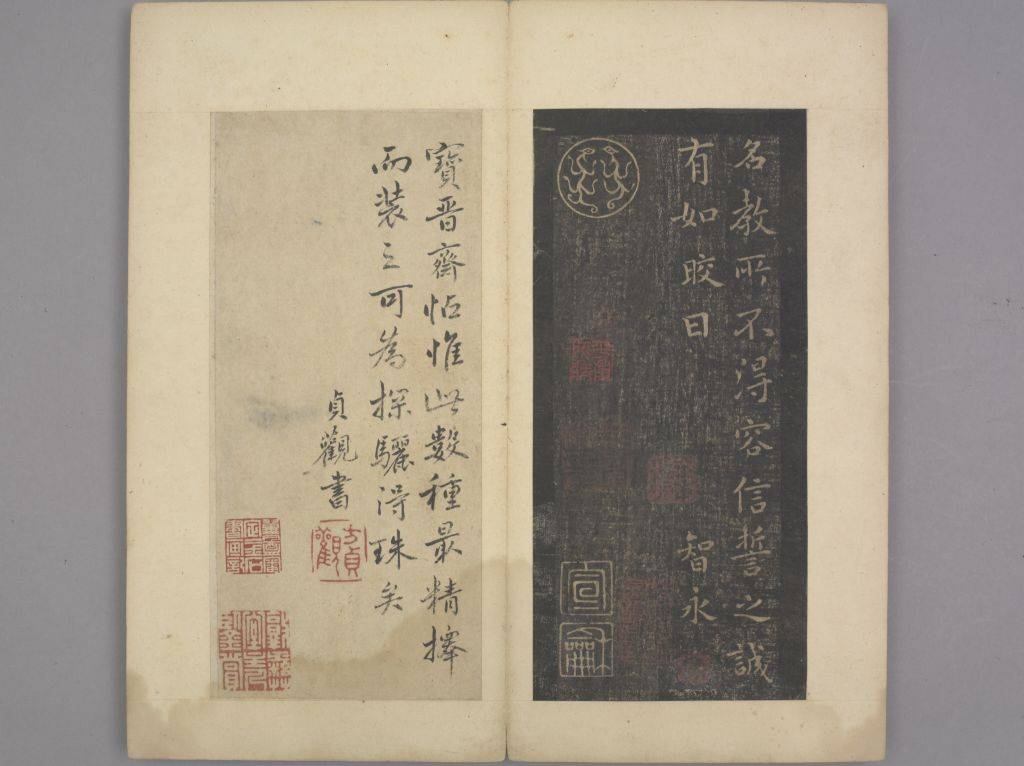 名教所不得容信誓之誠
有如晈日　智永
寶晋齋帖惟此數種最精擇
而裝之可為探驪得珠矣
貞觀書